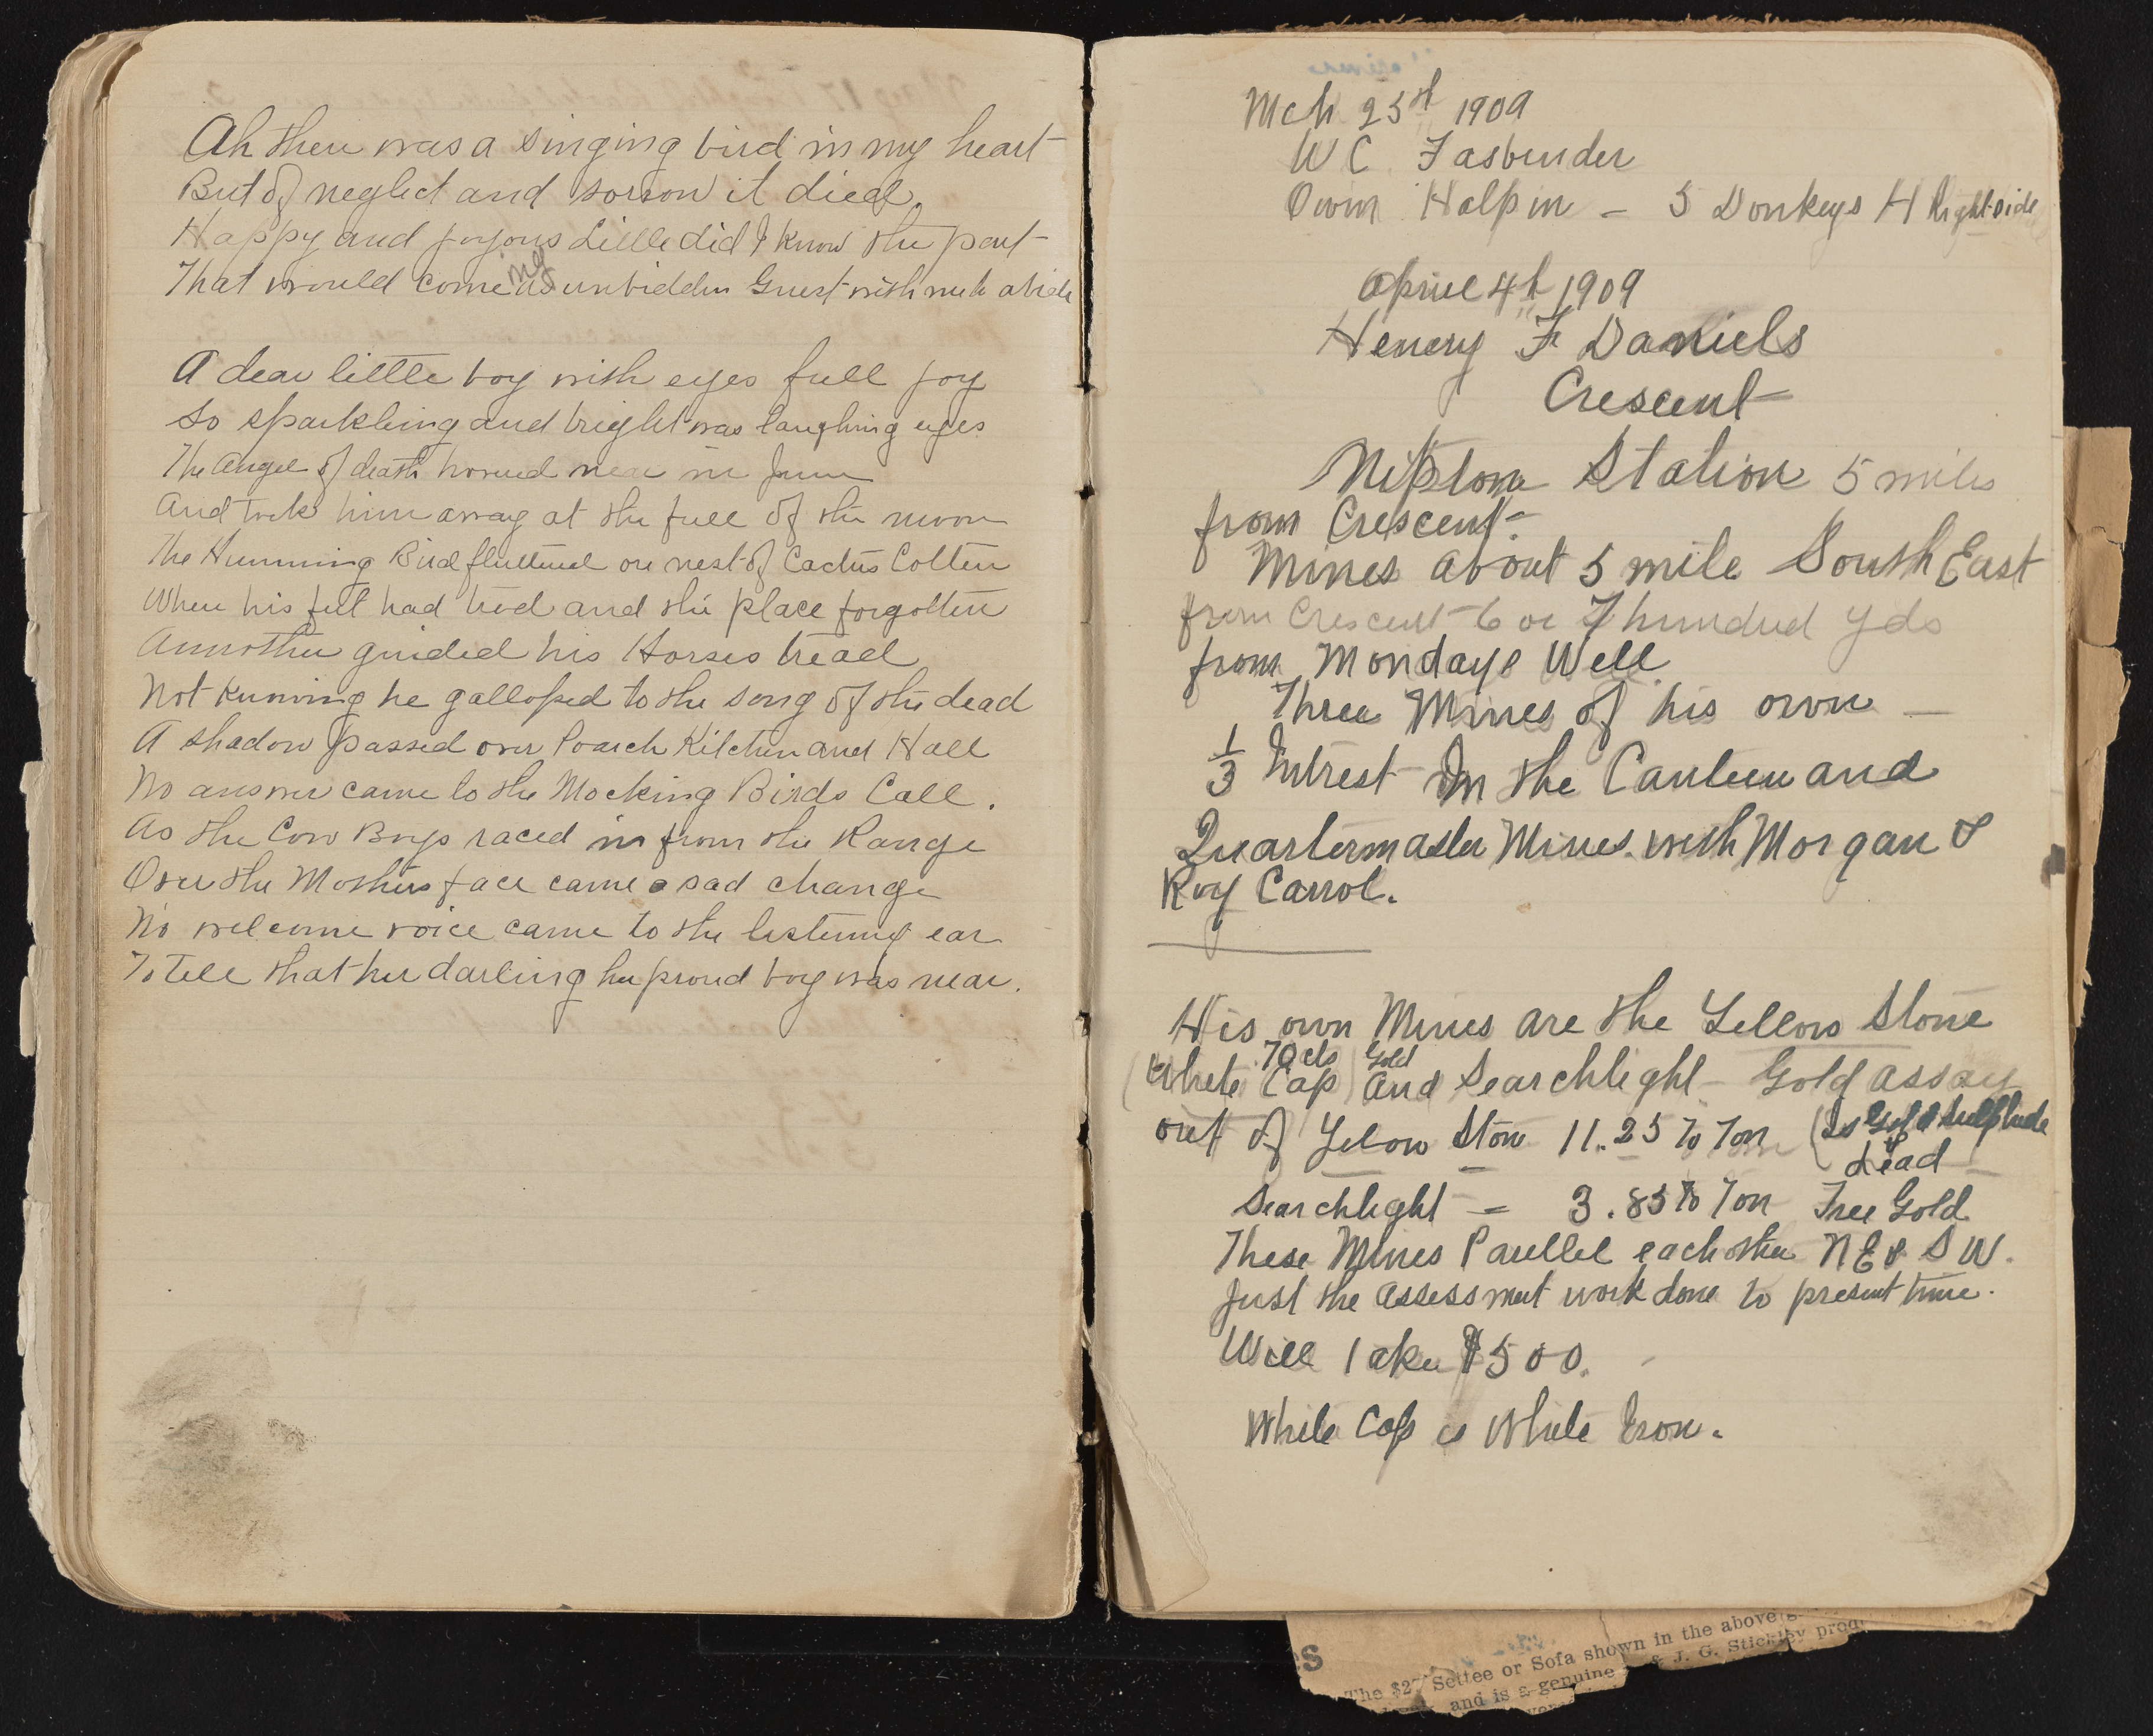 Ah there was a singing bird in my heart
But of neglect and sorrow it died.
Happy and joyous Little did I know the part
That would come ing as unbidden Guest with me to abide
A dear little boy with eyes full joy
So sparkling and bright was laughing eyes
The Angel of death hovered near in June
And took him away at the full of the moon
The Humming Bird fluttered on nest of Cactus Cotten
Where his feet had trod and the place forgotten
Annother guided his Horses tread
Not knowing he galloped to the song of the dead
A shadow passed over Poarch Kitchen and Hall
No answer came to the Mocking Birds Call.
As the Cow Boys raced in from the Range
Over the Mothers face came a sad change
No welcome voice came to the listening ear
To Tell that her darling her proud boy was near.
Mch 25th 1909
W C Fasbender
Owin Halpin - 5 Donkeys H Right side
Aprile 4th 1909
Henery F Daniels
Crescent
Nipton Station 5 miles
from Crescent
Mines about 5 mile South East
from Crescent - 6 or 7 hundred yds
from Mondays Well
Three Mines of his own —
1/3 Intrest In the Canteen and
Quartermaster Mines. with Morgan &
Roy Carrol.
His own Mines are the Yellow Stone
70 cts Gold
(White Cap) And Searchlight - Gold assay
out of Yelow Ston 11.25 To Ton (Is Gold Sulphide
Searchlight - 3.85 To Ton Free Gold
These Mines Parellel each other N E & S W.
Just the Assessment work done to present time.
Will Take $500.
White Cap is White Iron.
The $2 Settee or Sofa shown in the above
and is a genuine & J. G. Stickley